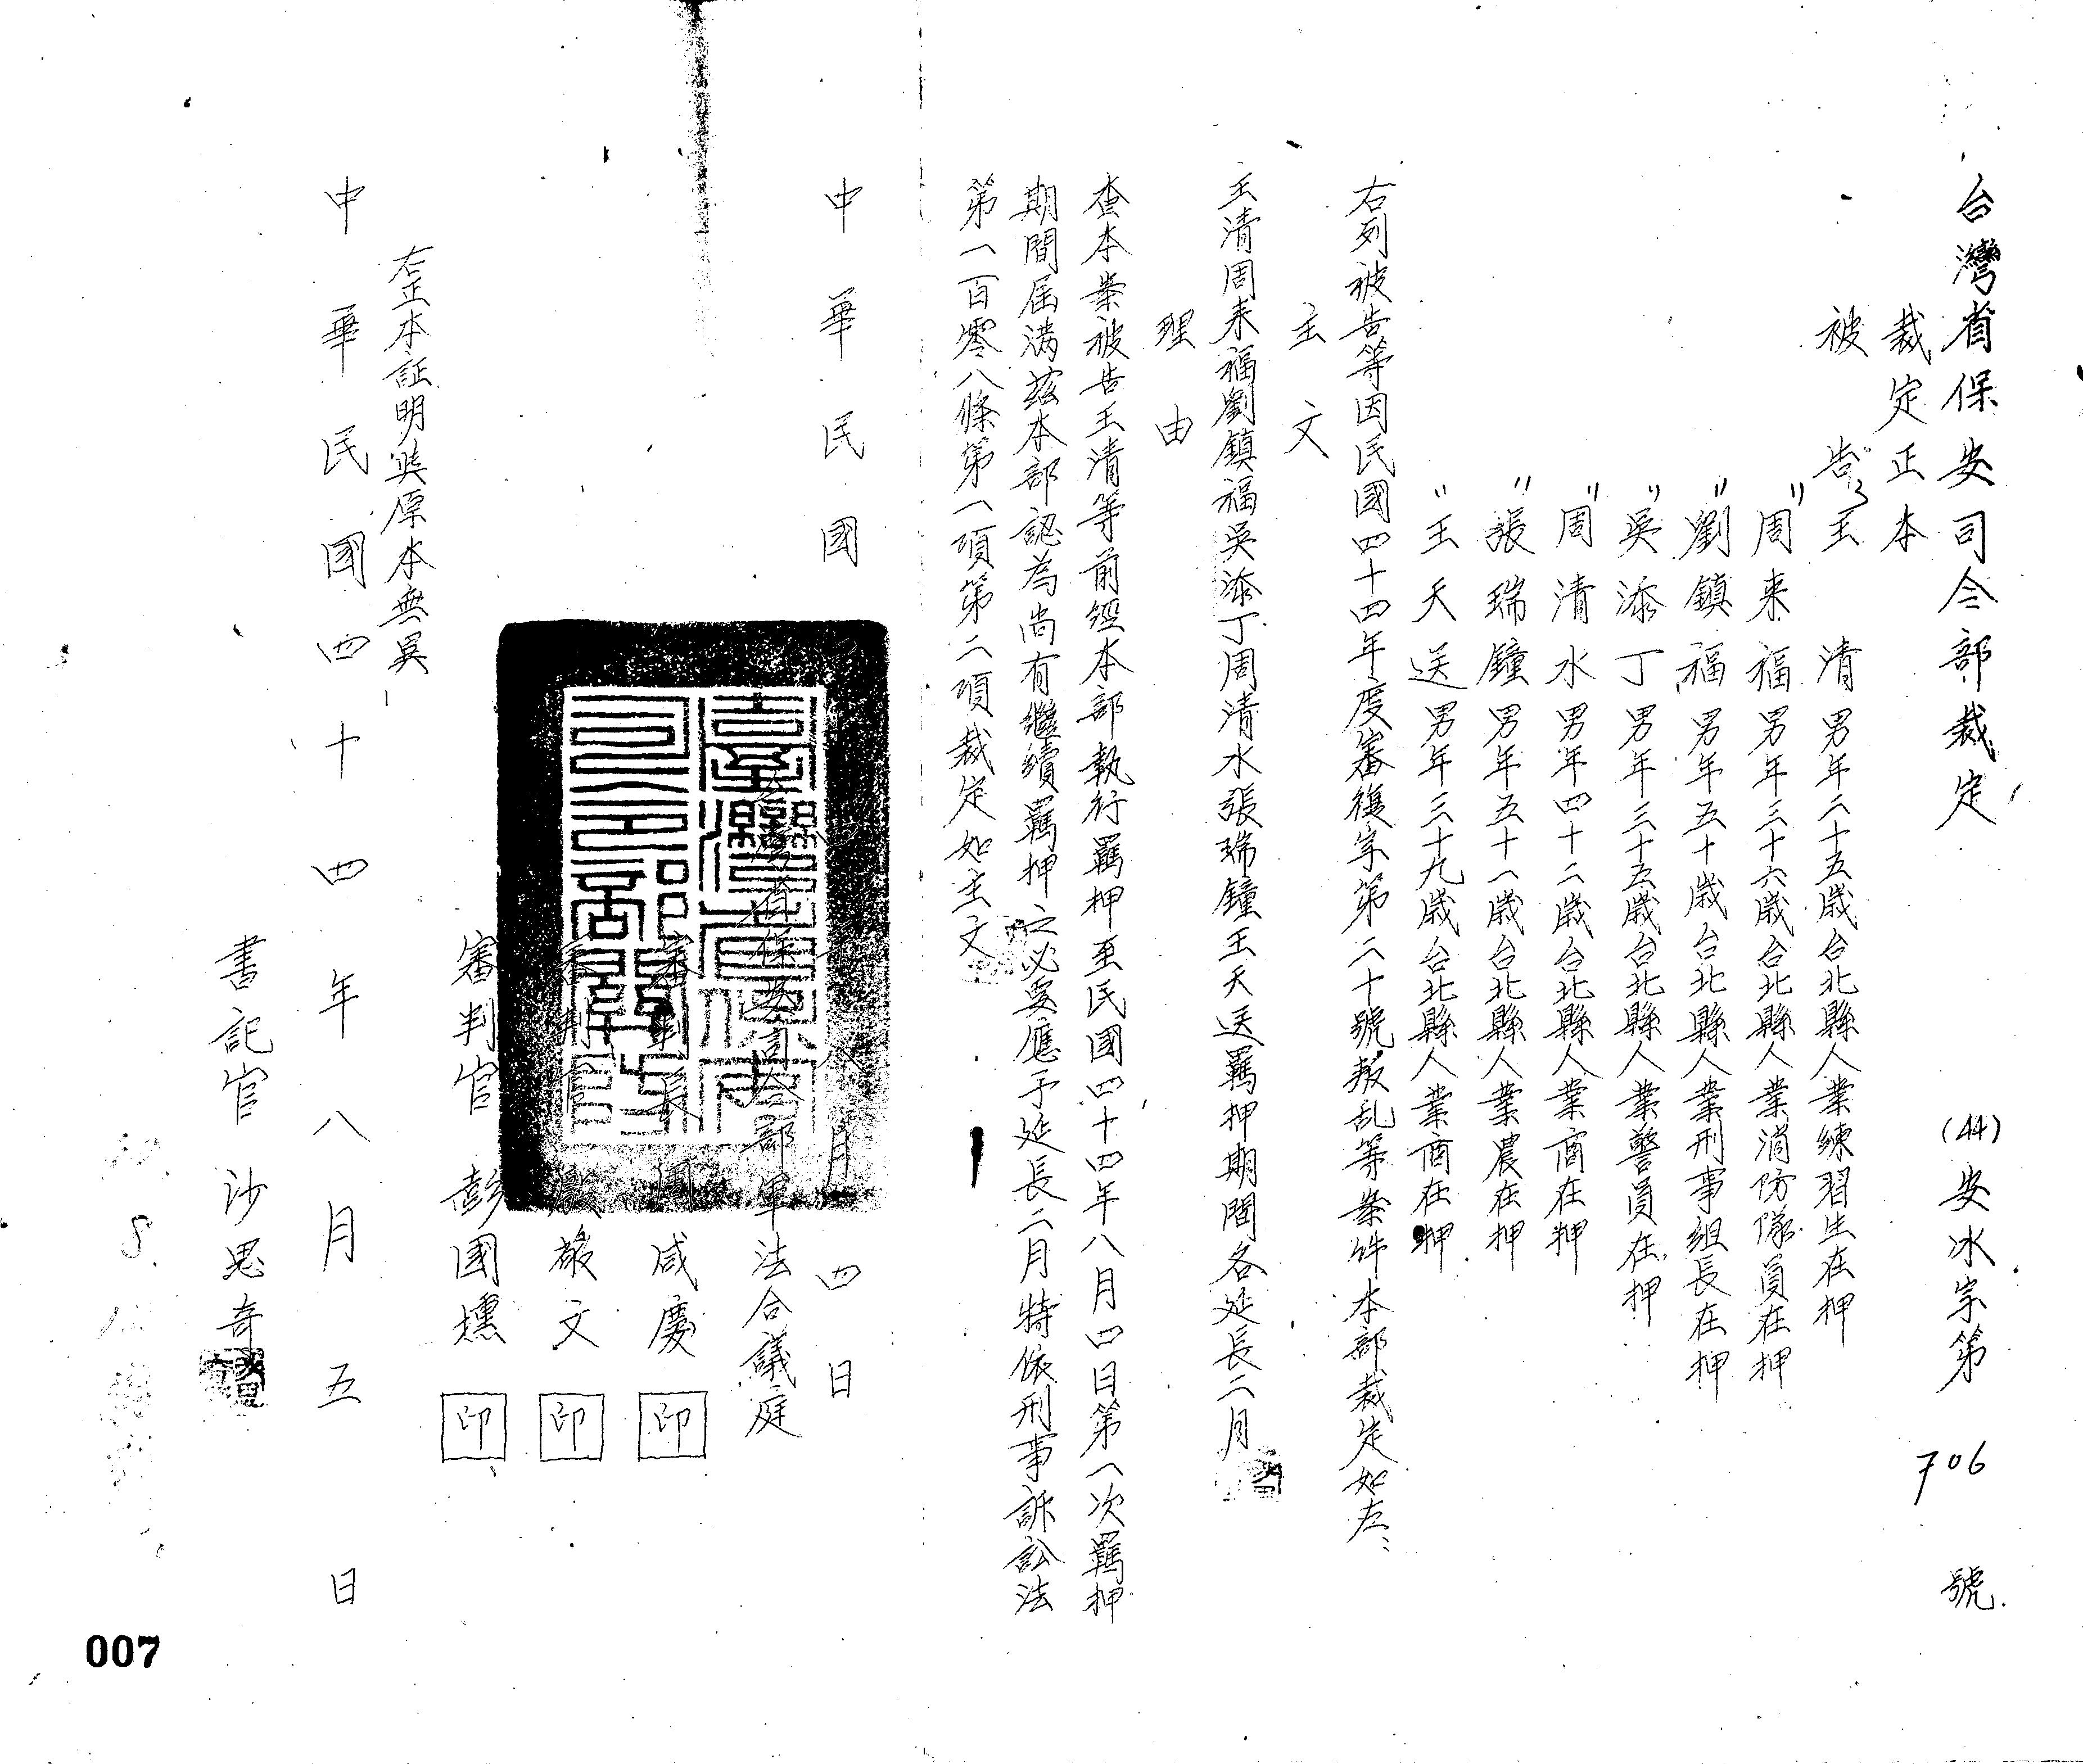 台灣省保安司令部裁定 (44)安氷宗第706號
裁定正本
被告 王清 男年二十五歲台北縣人業練習生在押
〃 周来福 男年三十六歲台北縣人業消防隊員在押
〃 劉鎮福 男年五十歲台北縣人業刑事組長在押
〃 吳添丁 男年三十五歲台北縣人業警員在押
〃 周清水 男年四十二歲台北縣人業商在押
〃 張瑞鐘 男年五十一歲台北縣人業農在押
〃 王天送 男年三十九歲台北縣人業商在押
右列被告等因民國四十四年度審復字第二十號叛乱等案件本部裁定如左：
主文
王清周来福劉鎮福吳添丁周清水張瑞鐘王天送羈押期間各延長二月
理由
查本案被告王清等前經本部執行羈押至民國四十四年八月四日第一次羈押
期間屆滿茲本部認為尚有繼續羈押之必要應予延長二月特依刑事訴訟法
第一百零八條第一項第二項裁定如主文
中華民國 八月四日
台灣省保安司令部軍法合議庭
審判長 周咸慶 印
審判官 殷敬文 印
審判官 彭國壎 印
右正本証明與原本無異
中華民國四十四年八月五日
書記官 沙思奇
007